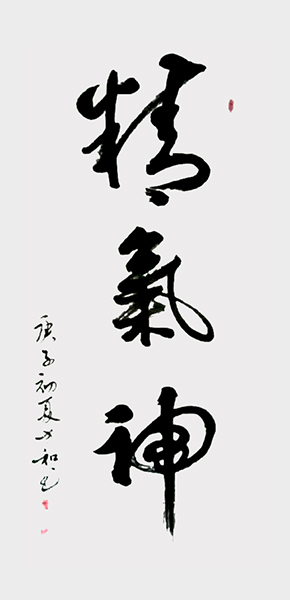 精氣神
庚子初夏